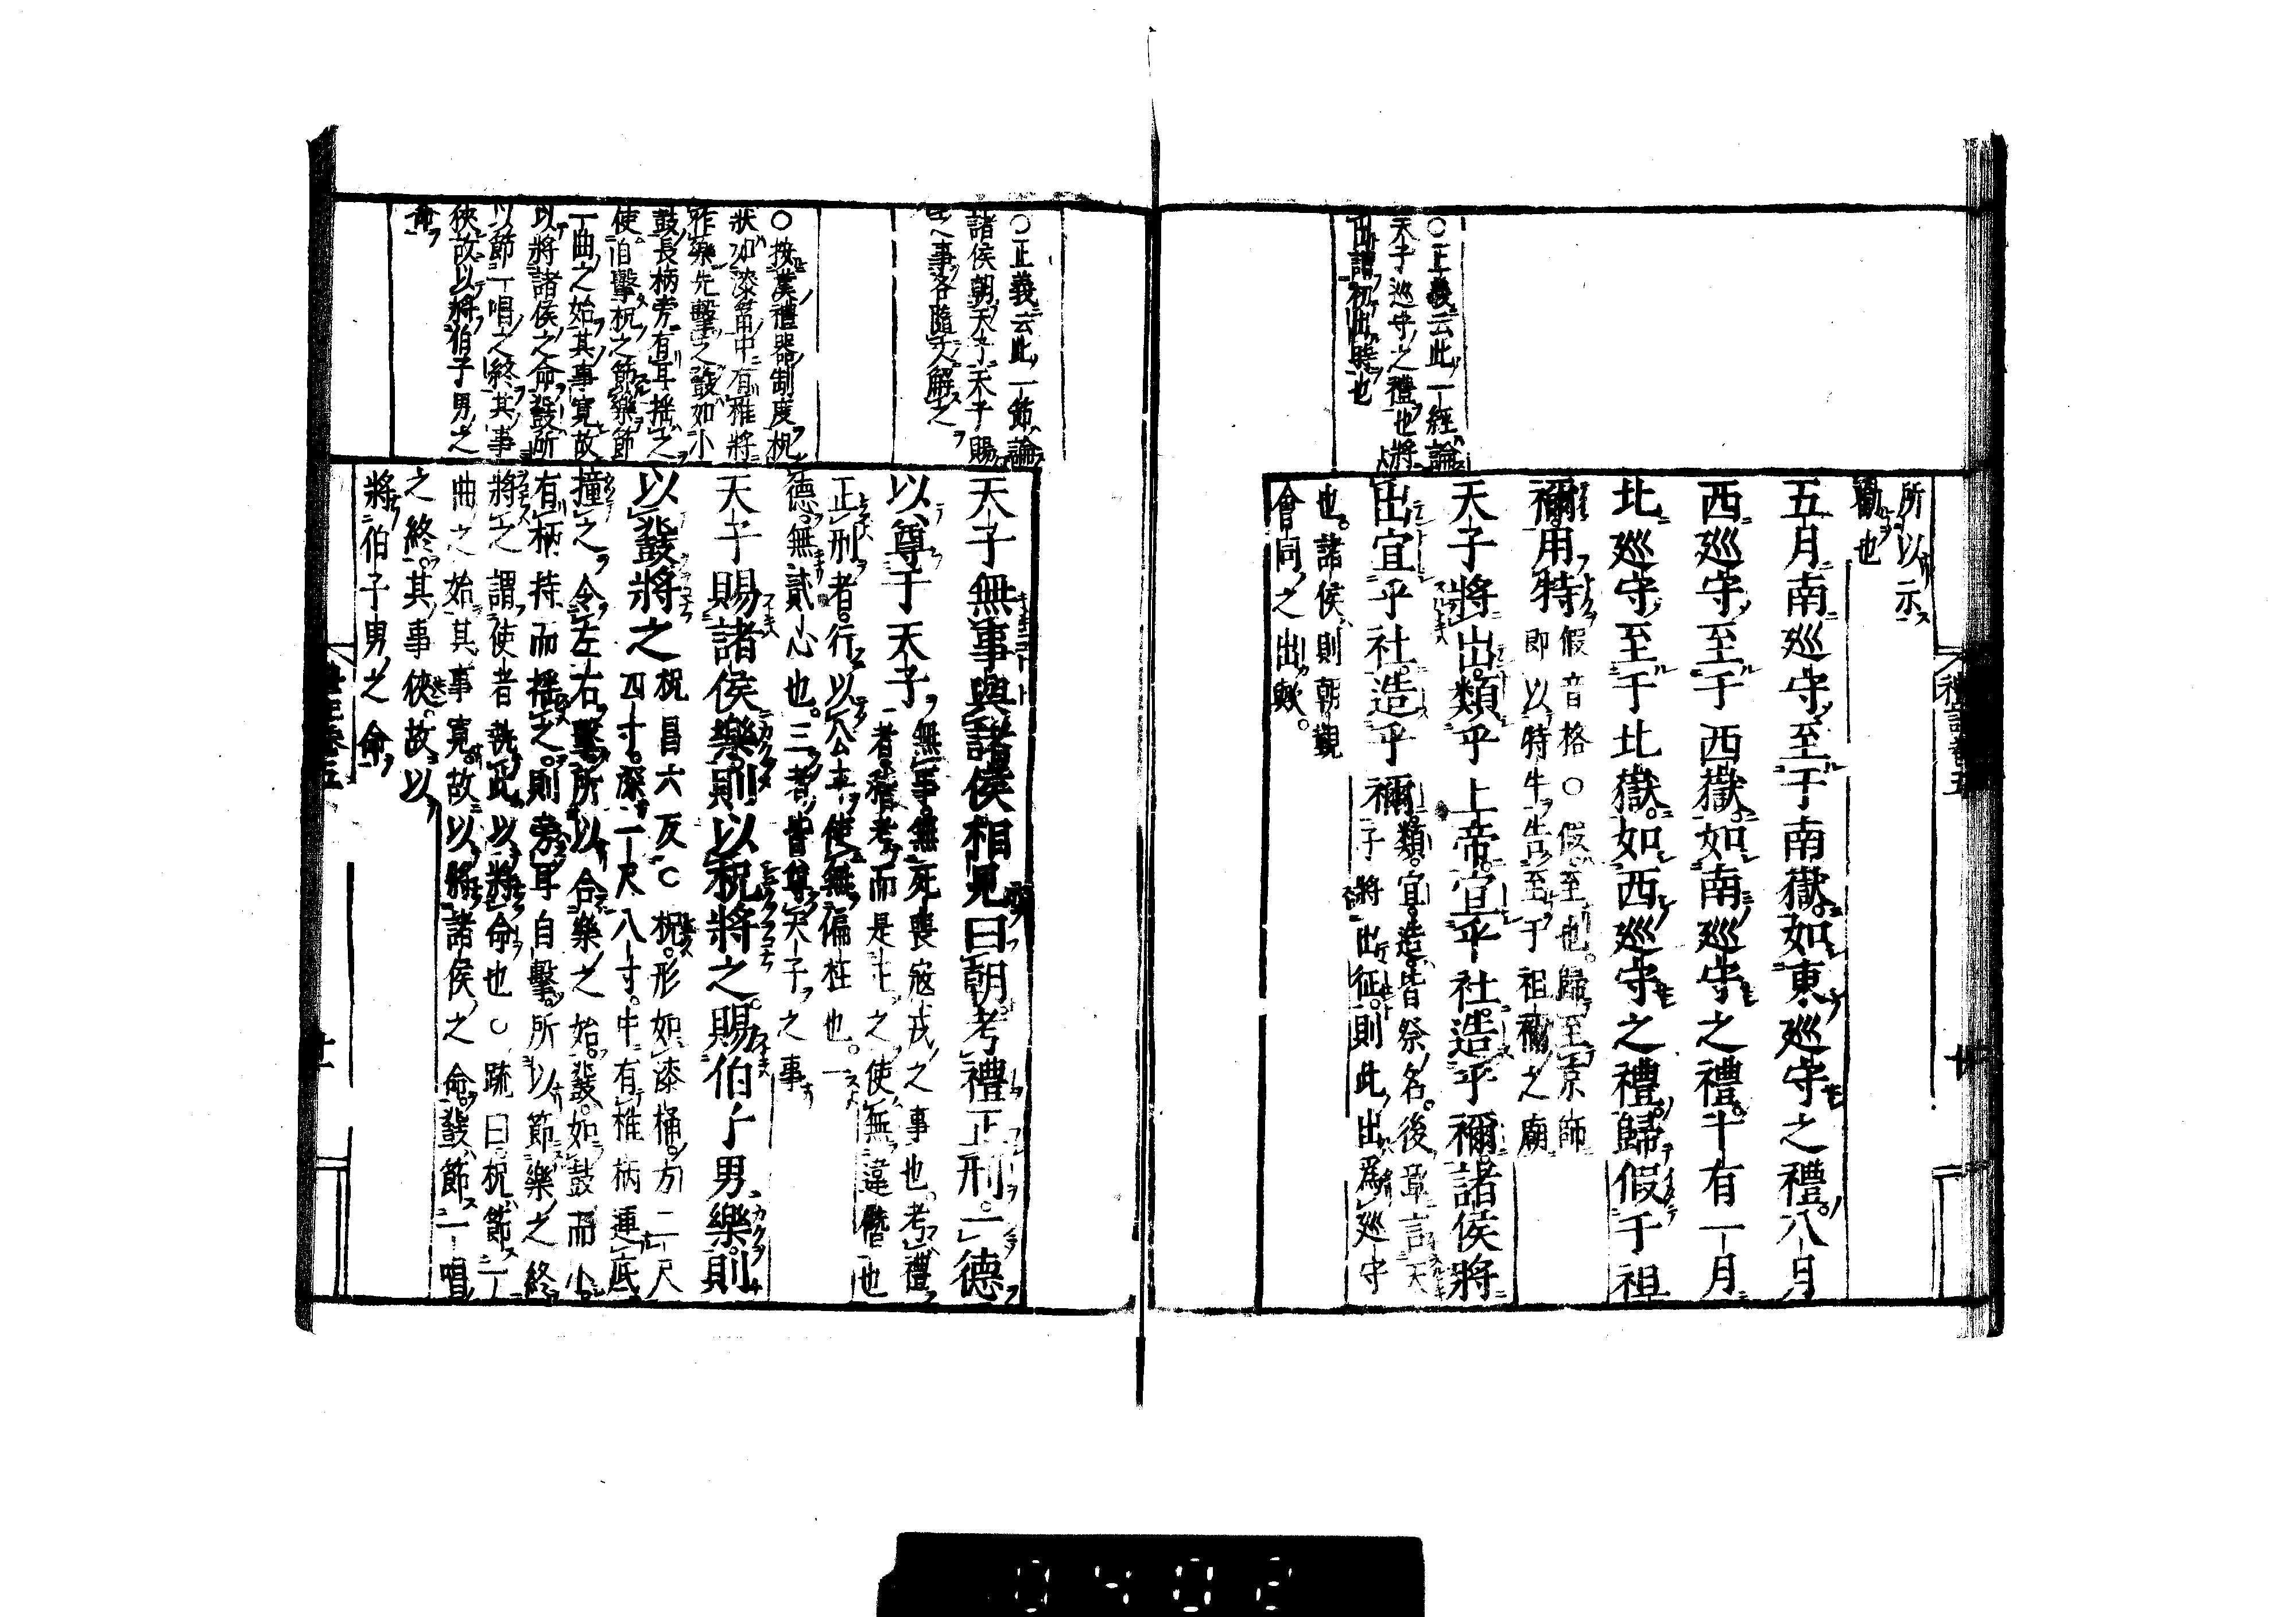 ○正義云此一經論
天子巡守之禮也將
出謂初出時也
所以示
勸也
五月南巡守至于南嶽如東巡守之禮八月
西巡守至于西嶽如南巡守之禮十有一月
北巡守至于北嶽如西巡守之禮歸假于祖
禰用特假音格○假至也歸至京師
即以特牛告至于祖禰之廟
天子將出類乎上帝宜乎社造乎禰諸侯將
出宜乎社造乎禰類宜造皆祭名後章言天
子將出征則此出爲巡守
也諸侯則朝觀
會同之出歟
禮記卷五
廿
○正義云此一節論
諸侯朝天子天子賜
之事各隨文解之
○按漢禮器制度柷
狀如漆筩中有椎將
作樂先擊之鼗如小
鼓長柄旁有耳搖之
使自擊柷之節樂節
一曲之始其事寬故
以將諸侯之命鼗所
以節一唱之終其事
狹故以將伯子男之
命
天子無事與諸侯相見曰朝考禮正刑一德
以尊于天子無事無死喪寇戎之事也考禮
者稽考而是正之使無違僭也
正刑者行以公平使無偏枉也一
德無貳心也三者皆尊天子之事
天子賜諸侯樂則以柷將之賜伯子男樂則
以鼗將之柷昌六反○柷形如漆桶方二尺
四寸深一尺八寸中有椎柄連底
撞之令左右擊所以合樂之始鼗如鼓而小
有柄持而搖之則旁耳自擊所以節樂之終
將之謂使者執此以將命也○疏曰柷節一
曲之始其事寬故以將諸侯之命鼗節一唱
之終其事狹故以
將伯子男之命